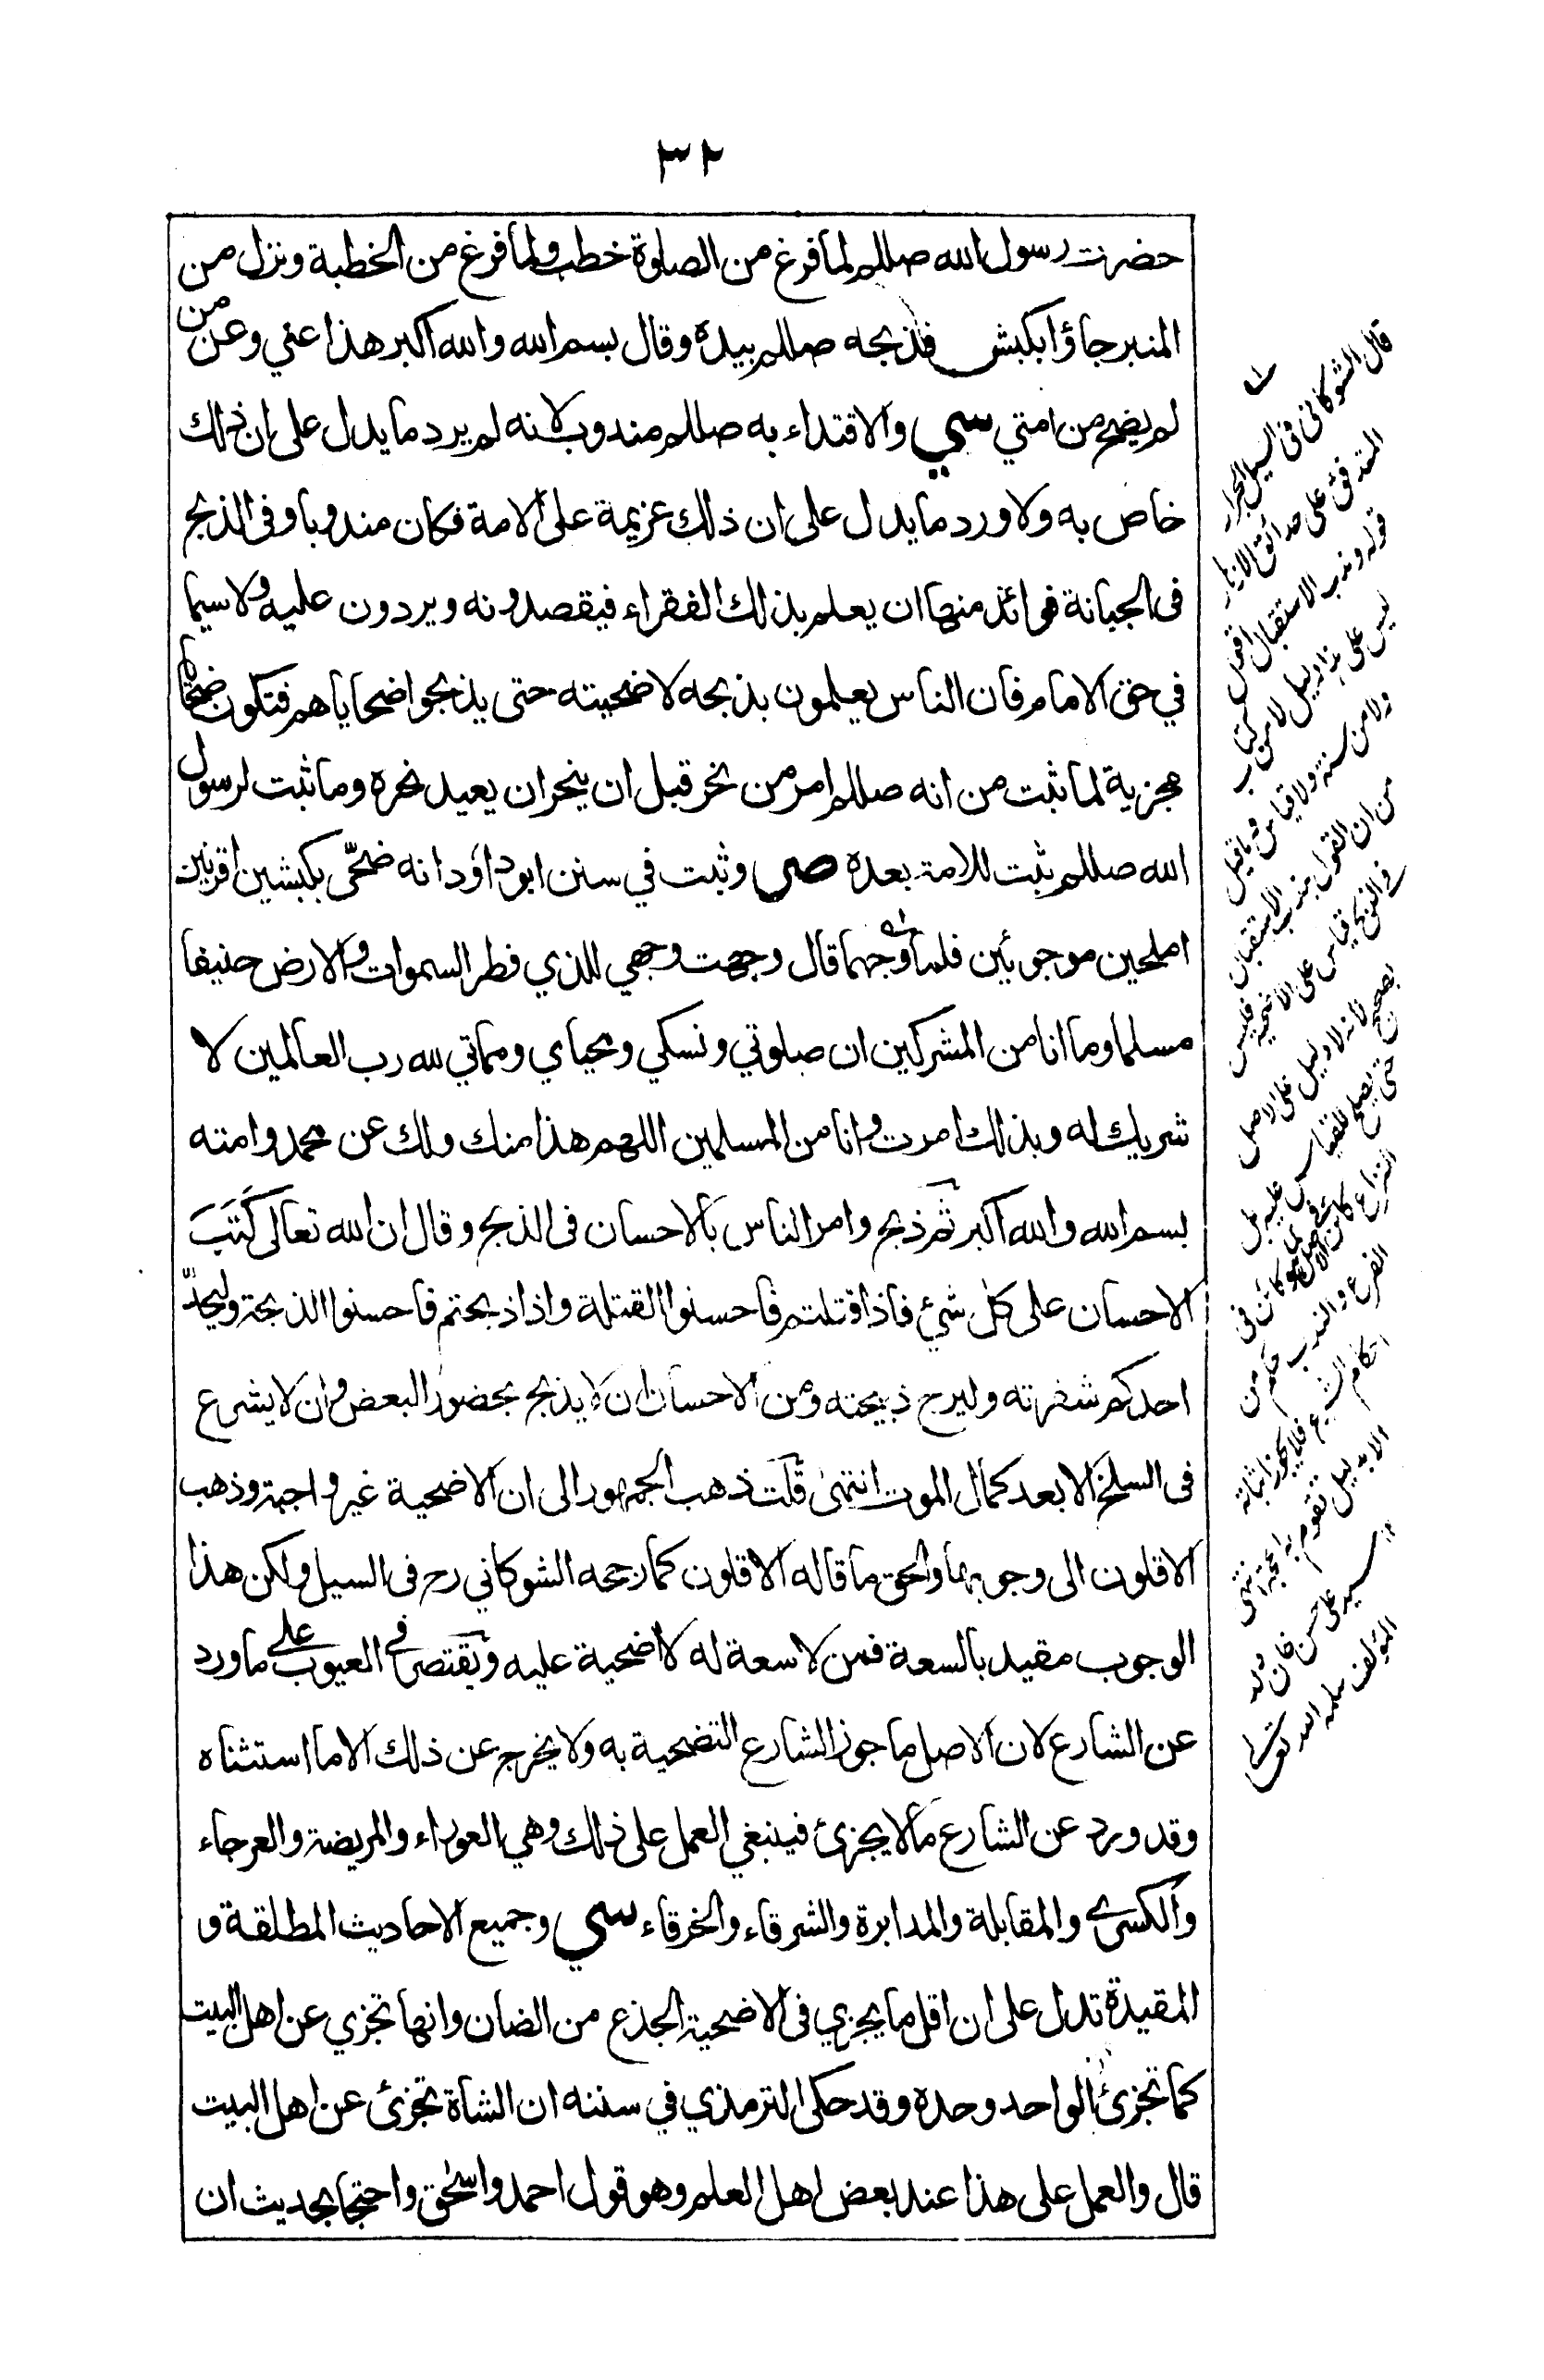 ٣٢
حضرت رسول الله صللم لما فرغ من الصلوة خطب ولما فرغ من الخطبة ونزل من
المنبر جاؤا بكبش فذبحه صللم بيده وقال بسم الله والله اكبر هذا عني وعن من
لم يضح من امتي سي والاقتداء به صللم مندوب لانه لم يرد ما يدل على ان ذلك
خاص به ولا ورد ما يدل على ان ذلك عزيمة على الامة فكان مندوبا وفى الذبح
فى الجبانة فوائد منها ان يعلم بذلك الفقراء فيقصدونه ويردون عليه ولا سيما
في حق الامام فان الناس يعلمون بذبحه لاضحيته حتى يذبحوا ضحاياهم فتكون ضحاياهم
مجزية لما ثبت من انه صللم امر من نحر قبل ان ينحر ان يعيد نحره وما ثبت لرسول
الله صللم ثبت للامة بعده صى وثبت في سنن ابوداؤد انه ضحّى بكبشين اقرنين
املحين موجوئين فلما وجههما قال وجهت وجهي للذي فطر السموات والارض حنيفا
مسلما وما انا من المشركين ان صلوتي ونسكي ومحياي ومماتي لله رب العالمين لا
شريك له وبذلك امرت وانا من المسلمين اللهم هذا منك ولك عن محمد وامته
بسم الله والله اكبر ثم ذبح وامر الناس بالاحسان فى الذبح وقال ان الله تعالى كَتَبَ
الاحسان على كل شيء فاذا قتلتم فاحسنوا القتلة واذا ذبحتم فاحسنوا الذبحة وليحدّ
احدكم شفرته وليرح ذبيحته ومن الاحسان ان لا يذبح بحضور البعض وان لا يشرع
فى السلخ الا بعد كمال الموت انتهى قلت ذهب الجمهور الى ان الاضحية غير واجبة وذهب
الاقلون الى وجوبها والحق ما قاله الاقلون كما رجحه الشوكاني رح فى السيل ولكن هذا
الوجوب مقيد بالسعة فمن لا سعة له لا اضحية عليه ويقتصر فى العيوب على ما ورد
عن الشارع لان الاصل ما جوز الشارع التضحية به ولا يخرج عن ذلك الا ما استثناه
وقد ورد عن الشارع ما لا يجزئ فينبغي العمل على ذلك وهي العوراء والمريضة والعرجاء
والكسرى والمقابلة والمدابرة والشرقاء والخرقاء سي وجميع الاحاديث المطلقة و
المقيدة تدل على ان اقل ما يجزي فى الاضحية الجذع من الضان وانها تجزي عن اهل البيت
كما تجزئ الواحد وحده وقد حكى الترمذي في سننه ان الشاة تجزئ عن اهل البيت
قال والعمل على هذا عند بعض اهل العلم وهو قول احمد واسحق واحتجا بحديث ان
قال الشوكانى فى السيل الجرار
المتدفق على حدائق الازهار
قوله وندب الاستقبال اقول
ليس على هذا دليل لا من كتاب
ولا من سنة ولا قياس وما قيل
من ان القول بندب الاستقبال
فى الذبح قياس على الاضحية فليس
بصحيح لانه لا دليل على الاصل
حتى يصلح للقياس عليه بل
النزاع كائن فى الاصل كما هو كائن فى
الفرع والندب حكم من
احكام الشرع فلا يجوز اثباته
الا بدليل تقوم به الحجة انتهى
سيد على حسن خان ولد
المؤلف سلمه الله تعالى